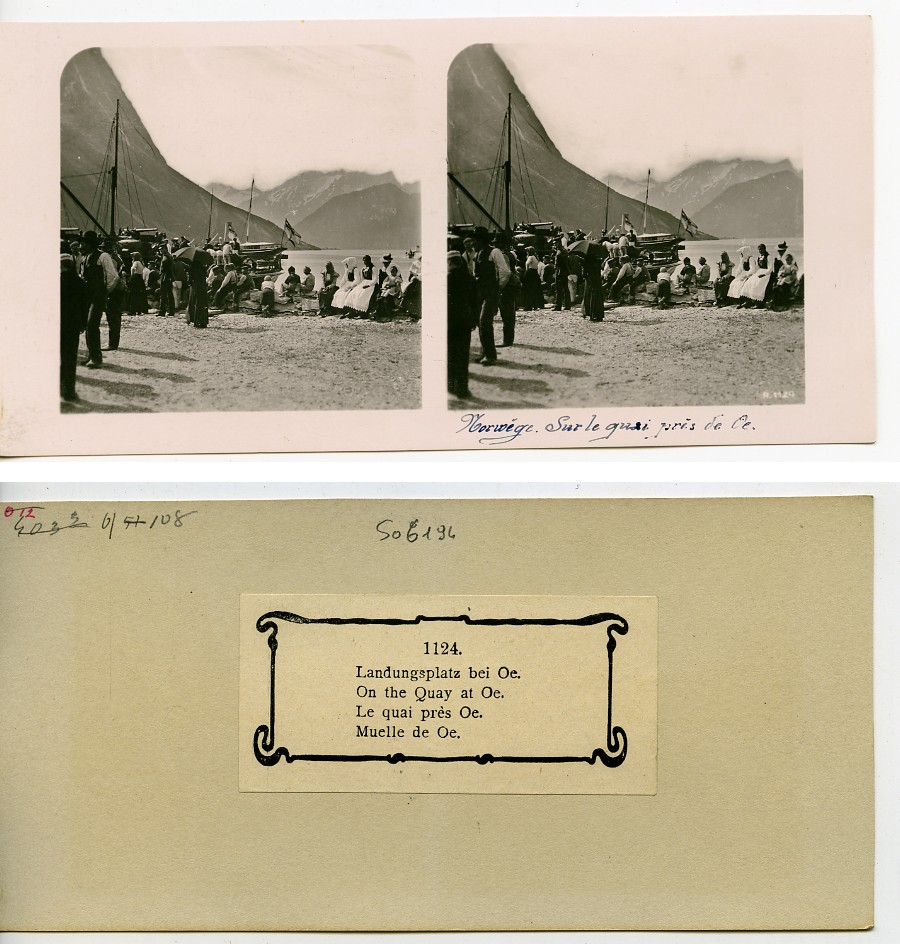 R.1124
Norwége. Sur le quai près de Oe.
012
4033 6/ 108
SoE194
1124.
Landungsplatz bei Oe.
On the Quay at Oe.
Le quai près Oe.
Muelle de Oe.